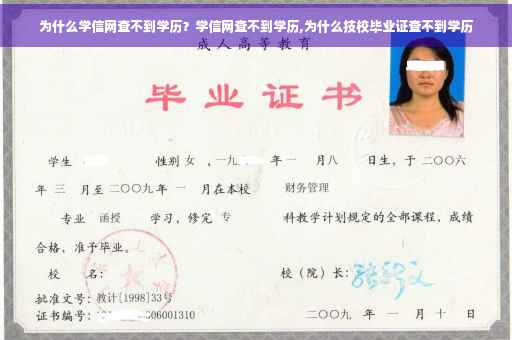 为什么学信网查不到学历？学信网查不到学历,为什么技校毕业证查不到学历
成人高等教育
毕业证书
学生 性别 女 ,一九 年一 月八 日生，于二〇〇六
年 三 月至二〇〇九年 一 月在本校 财务管理
专业 函授 学习，修完 专 科教学计划规定的全部课程，成绩
合格，准予毕业。
校 名： 校（院）长：
批准文号：教计[1998]33号
证书编号： 06001310 二〇〇九 年 一 月 十 日